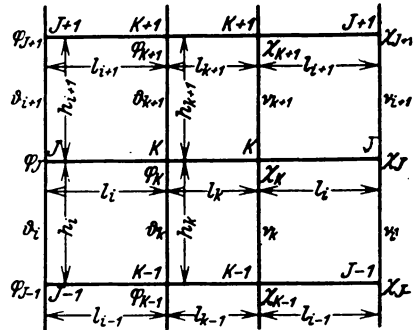 J+1 K+1 K+1 J+1
φJ+1 φK+1 χK+1 χJ+1
li+1 lk+1 li+1
ϑi+1 hi+1 ϑk+1 hk+1 νk+1 νi+1
J K K J
φJ φK χK χJ
li lk li
ϑi hi ϑk hk νk νi
K-1 K-1 J-1
φJ-1 J-1 φK-1 χK-1 χJ-
li-1 lk-1 li-1